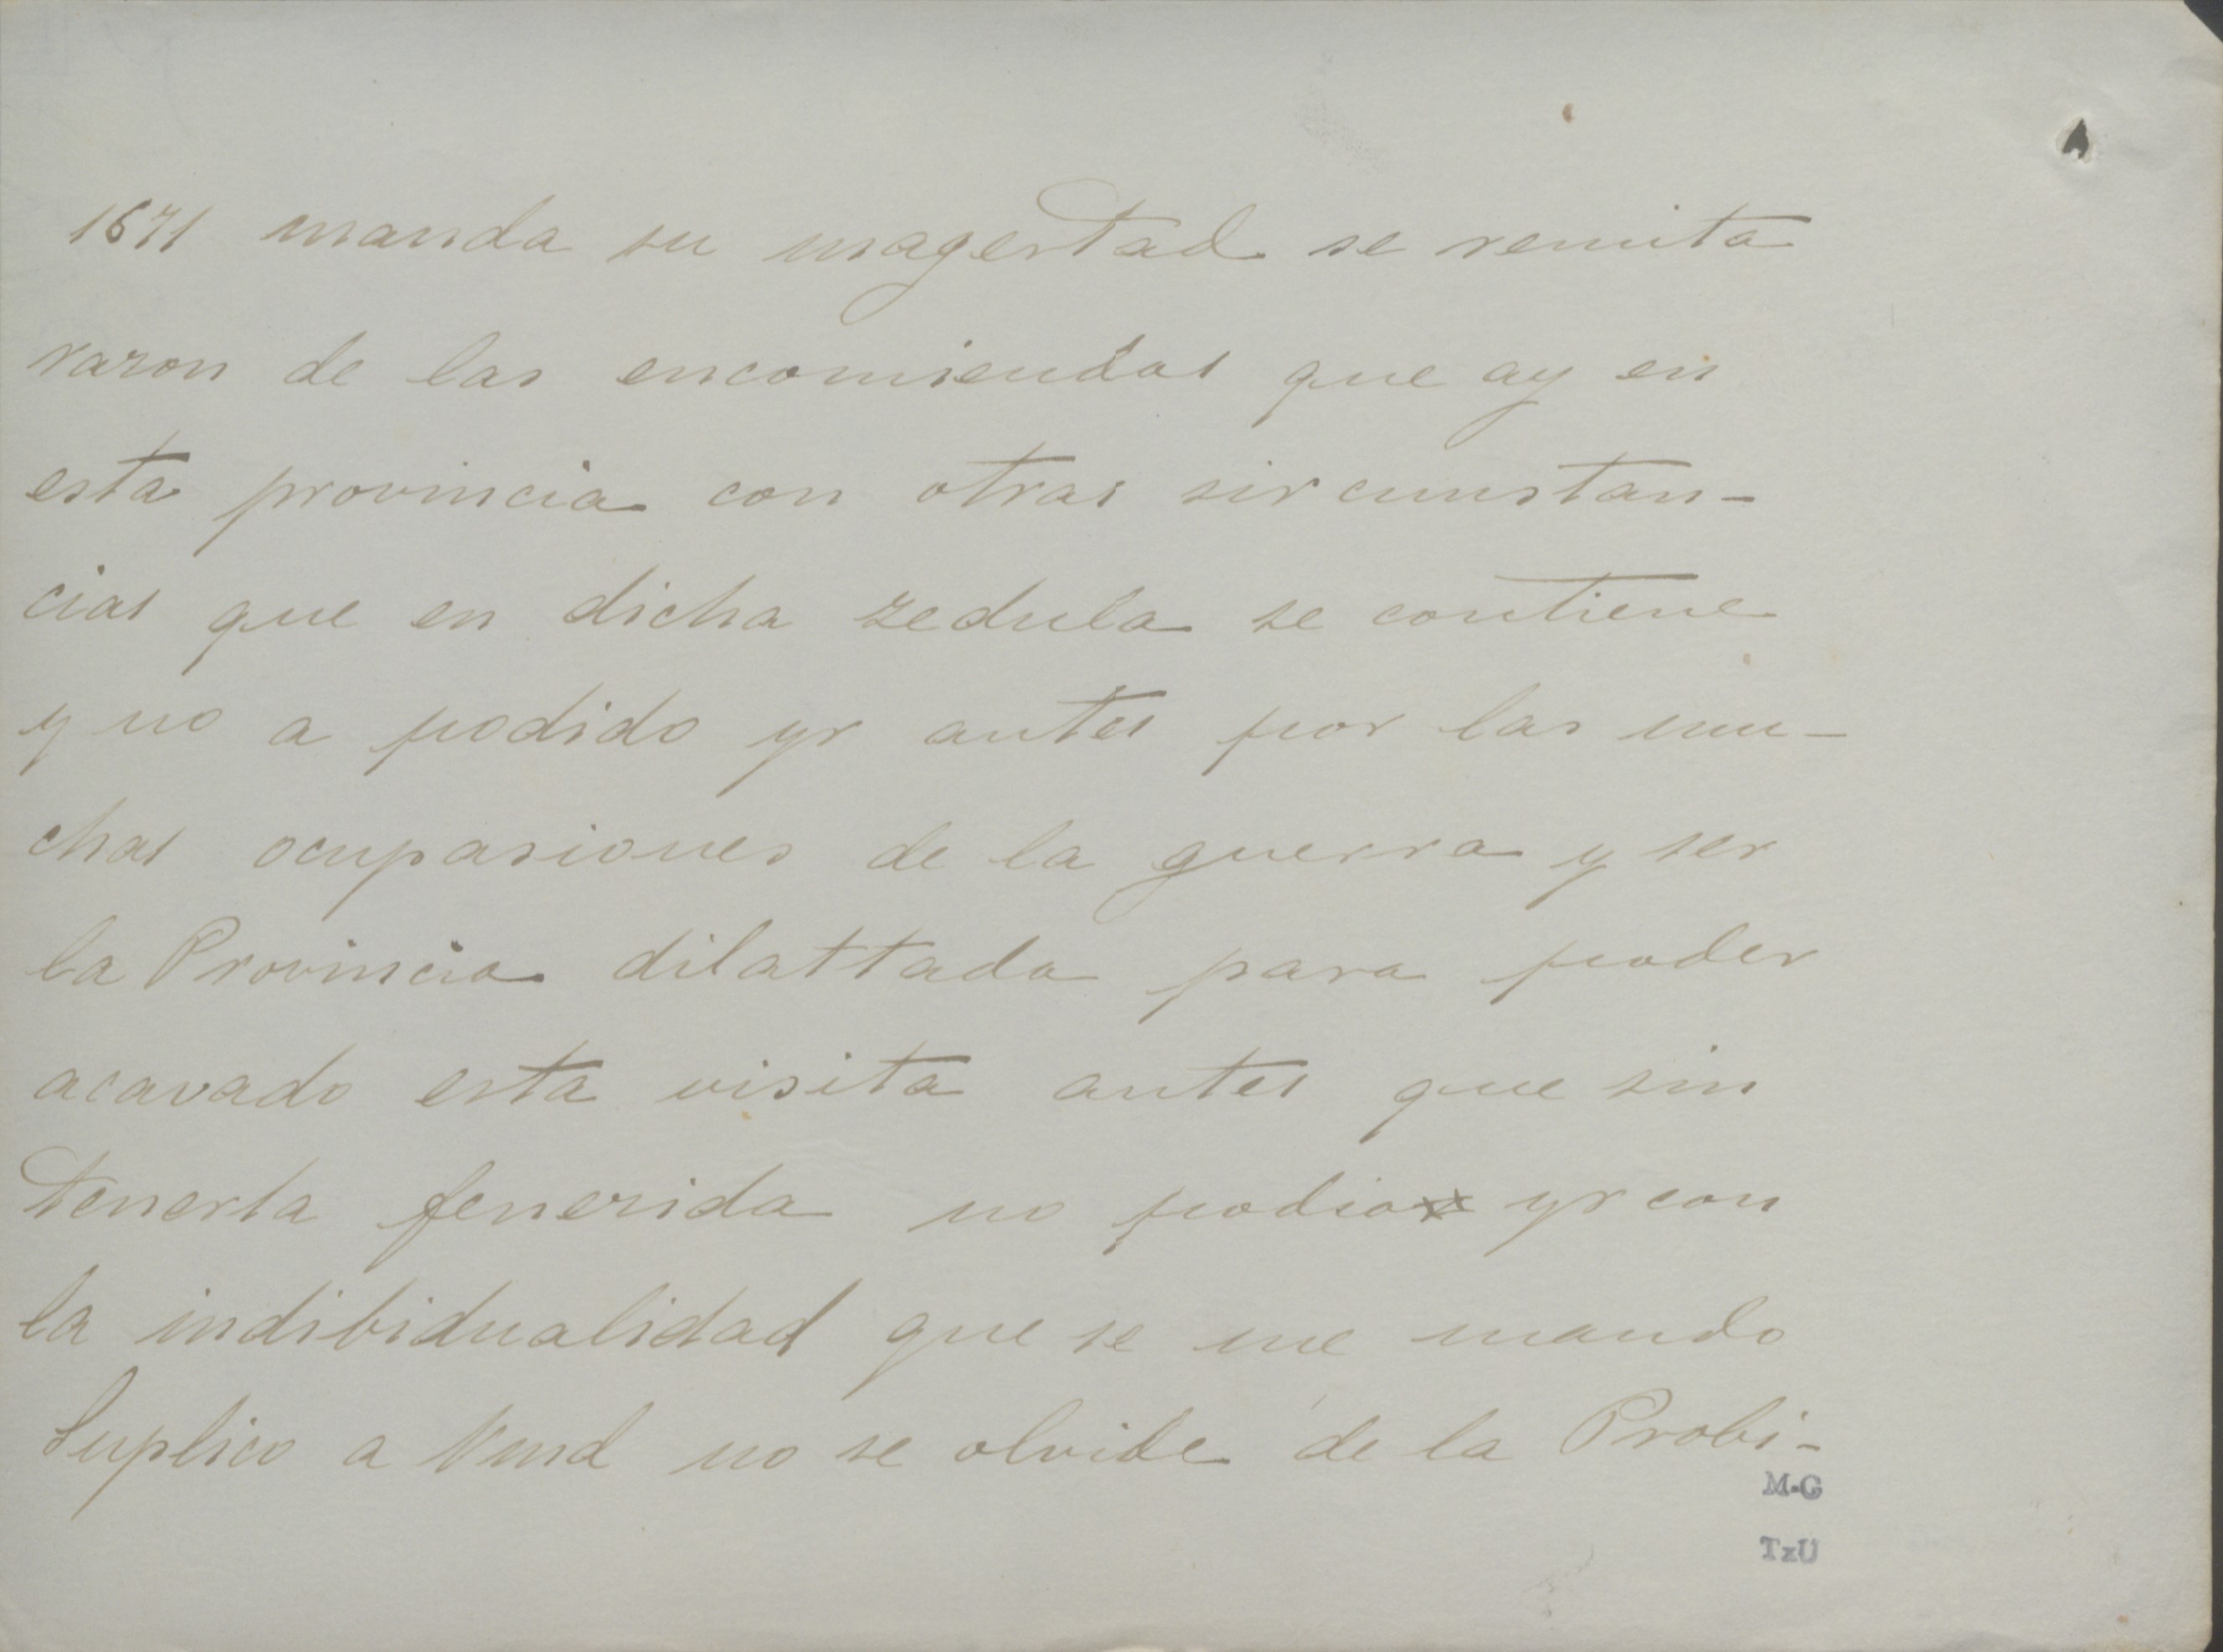 1671 manda su magestad se remita
razon de las encomiendas que ay en
esta provincia con otras sircunstan-
cias que en dicha zedula se contiene
y no a podido yr antes por las mu-
chas ocupasiones de la guerra y ser
la Provincia dilattada para poder
acavado esta visita antes que sin
tenerla fenezida no podia yr con
la indibidualidad que se me mando
Suplico a Vmd no se olvide de la Probi-
M-G
TzU